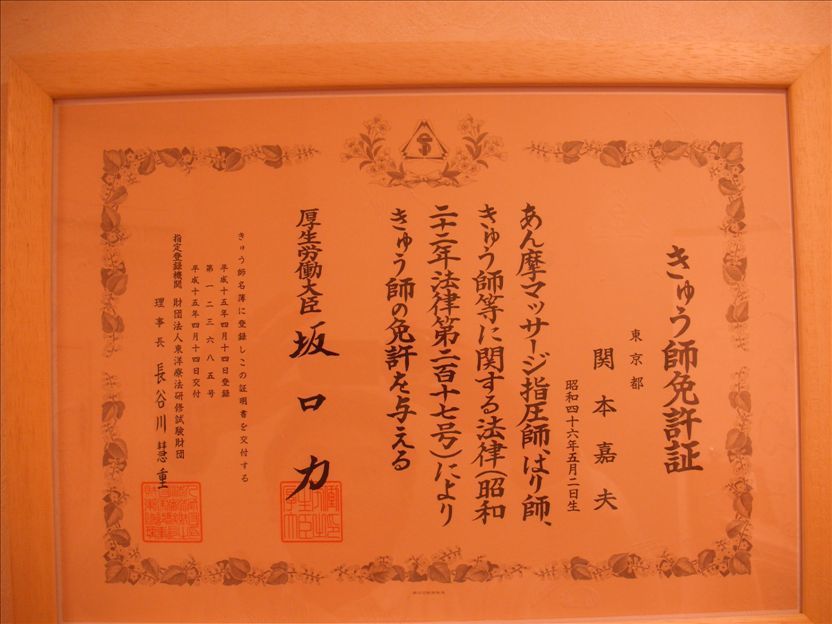 きゅう師免許証
東京都
関本嘉夫
昭和四十六年五月二日生
あん摩マッサージ指圧師、はり師、
きゅう師等に関する法律(昭和
二十二年法律第二百十七号)により
きゅう師の免許を与える
厚生労働大臣 坂口力
きゅう師名簿に登録しこの証明書を交付する
平成十五年四月十四日登録
第一二三六八五号
平成十五年四月十四日交付
指定登録機関 財団法人東洋療法研修試験財団
理事長 長谷川慧重